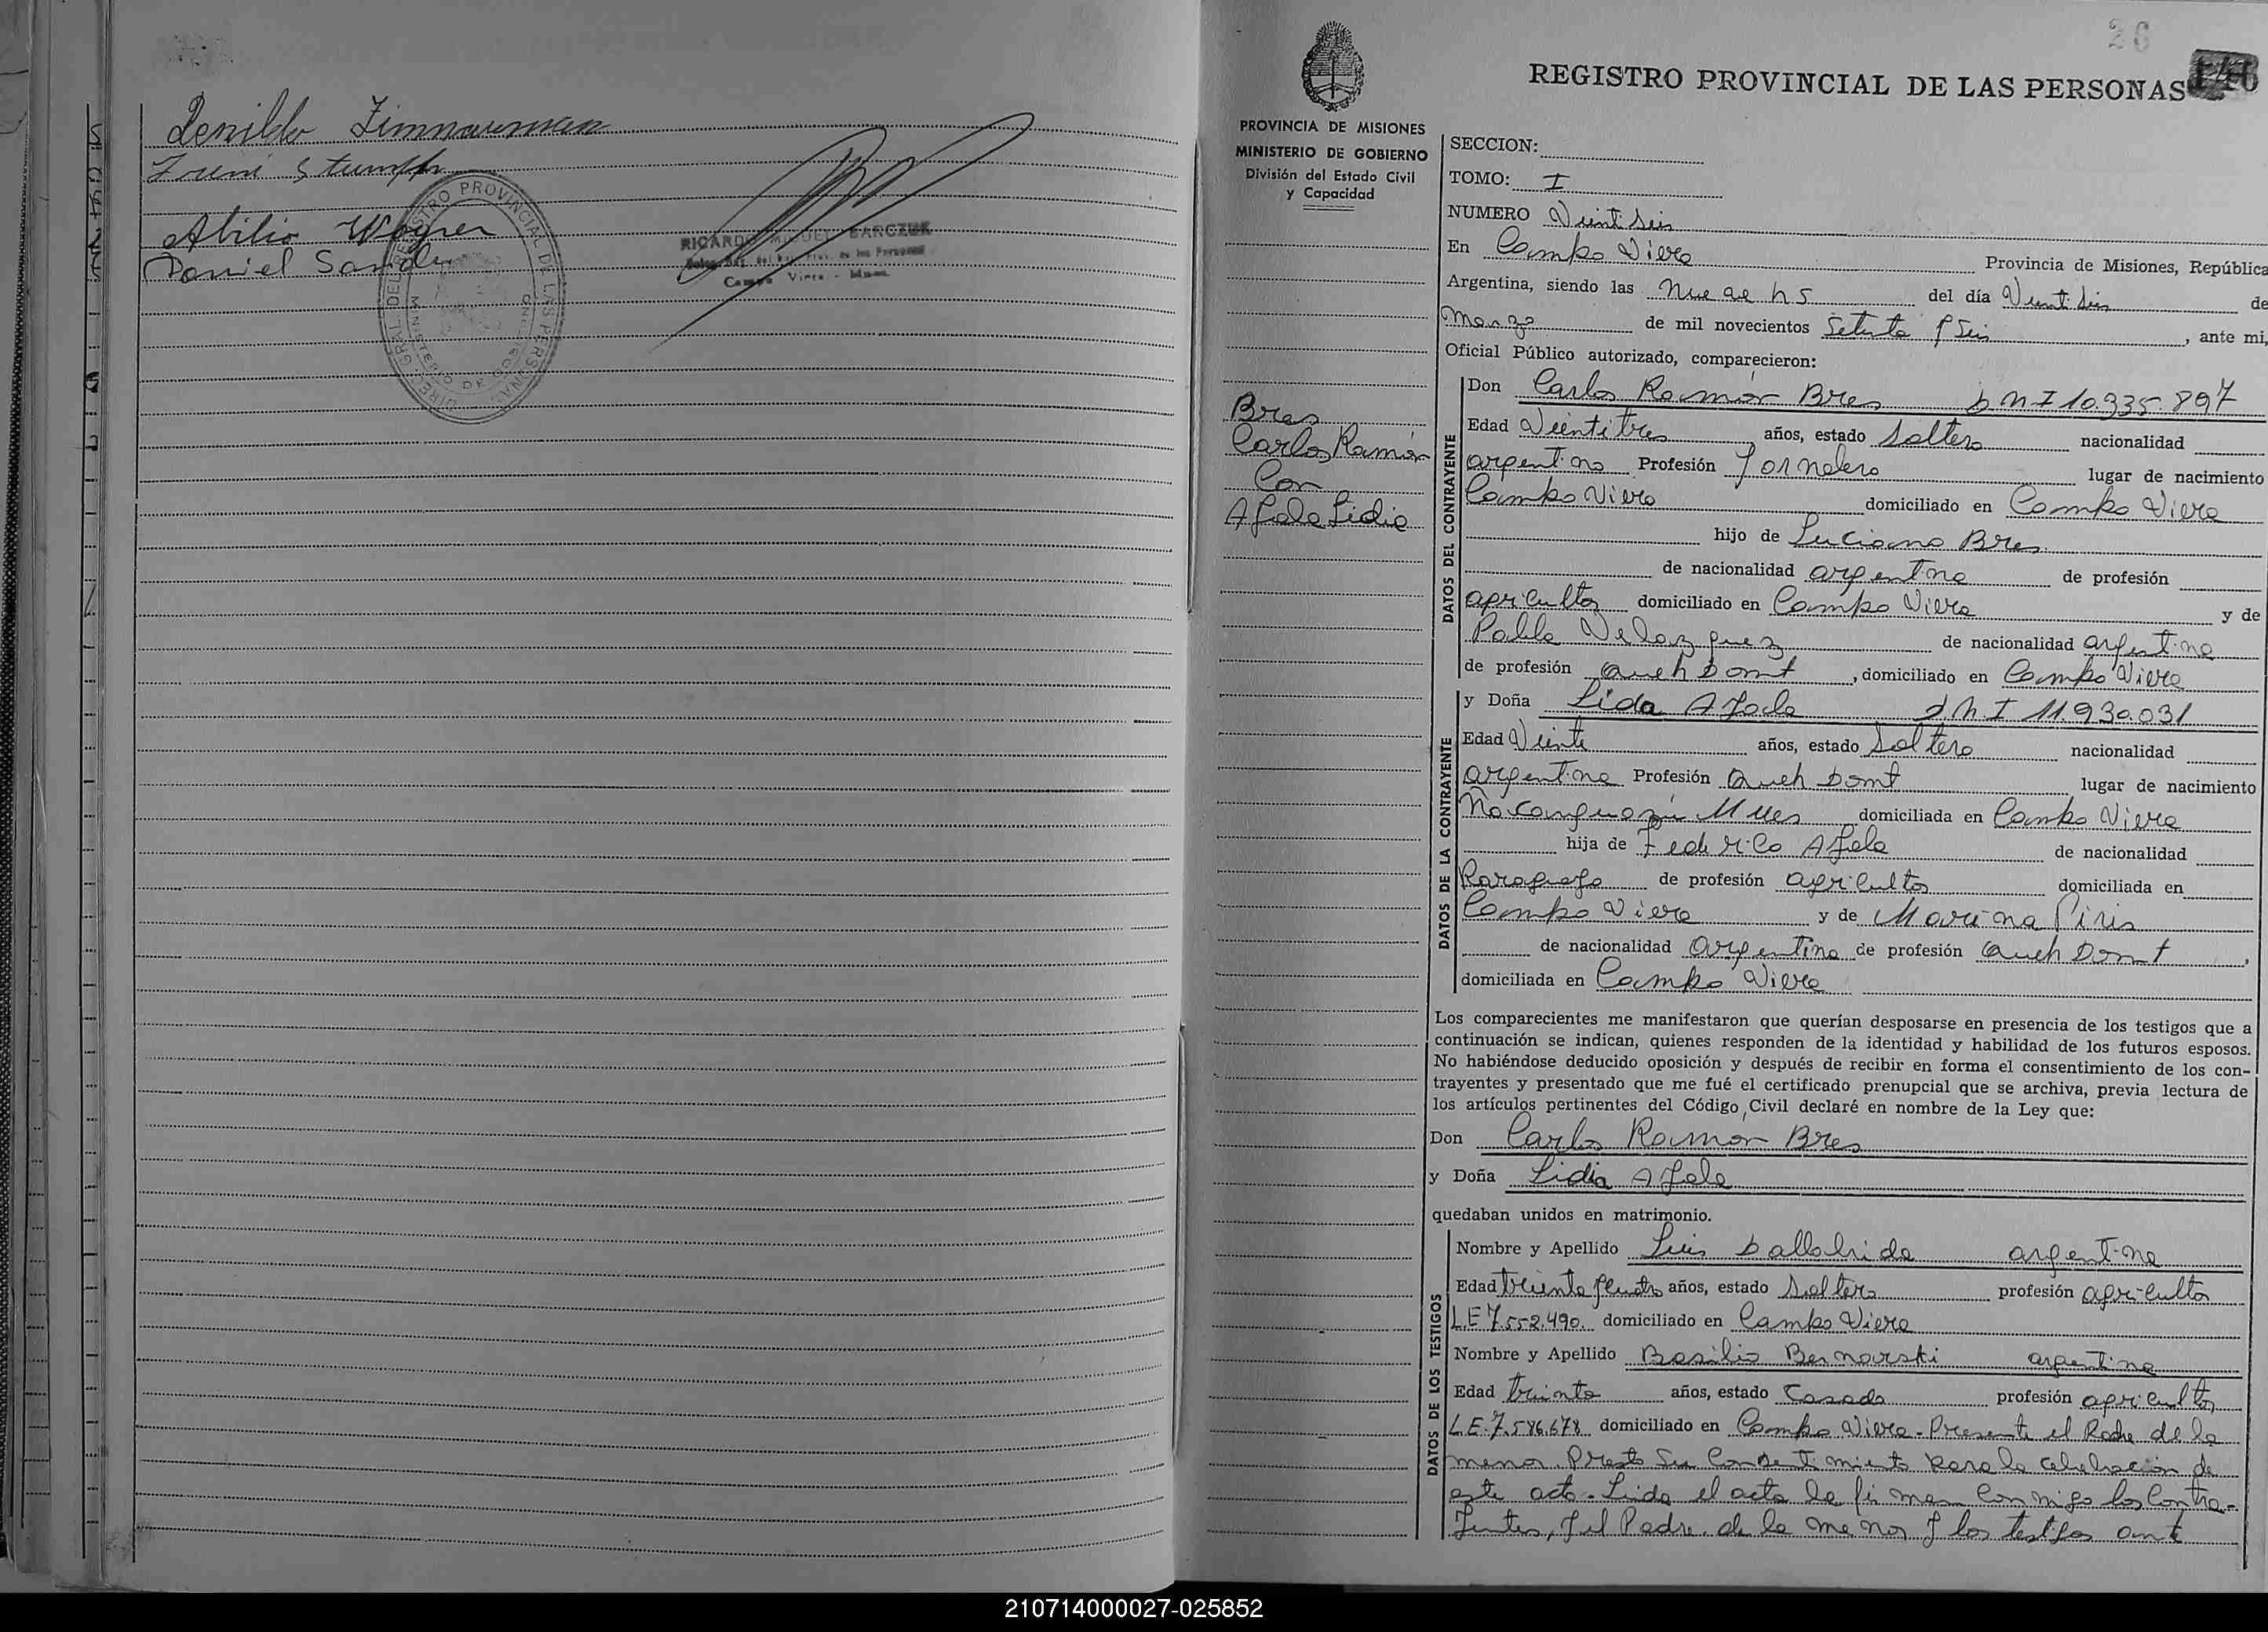 Renildo Zimmerman
Ireni Stumpf
Abilio Wagner
Daniel Sand
DIREC. GRAL. DEL REGISTRO PROVINCIAL DE LAS PERSONAS
MINISTERIO DE GOBIERNO
RICARDO MIGUEL BARCZUK
Campo Viera - Mnes.
26
REGISTRO PROVINCIAL DE LAS PERSONAS
PROVINCIA DE MISIONES
MINISTERIO DE GOBIERNO
División del Estado Civil
y Capacidad
Bres
Carlos Ramón
Con
Ayala Lidia
SECCION:
TOMO: I
NUMERO Veintiseis
En Campo Viera Provincia de Misiones, República
Argentina, siendo las nueve hs del día Veintiseis de
Marzo de mil novecientos Setenta y Seis, ante mi,
Oficial Público autorizado, comparecieron:
DATOS DEL CONTRAYENTE
Don Carlos Ramón Bres DNI 10.335.897
Edad Veintitres años, estado Soltero nacionalidad
argentino Profesión Jornalero lugar de nacimiento
Campo Viera domiciliado en Campo Viera
hijo de Luciano Bres
de nacionalidad argentina de profesión
agricultor domiciliado en Campo Viera y de
Pabla Velazquez de nacionalidad argentina
de profesión Queh Domt, domiciliado en Campo Viera
DATOS DE LA CONTRAYENTE
y Doña Lida Ayala DNI 11.930.031
Edad Veinte años, estado Soltera nacionalidad
argentina Profesión Queh Domt lugar de nacimiento
Ñacanguazú Mnes domiciliada en Campo Viera
hija de Federico Ayala de nacionalidad
Paraguayo de profesión agricultor domiciliada en
Campo Viera y de Marina Piris
de nacionalidad argentina de profesión Queh Domt,
domiciliada en Campo Viera
Los comparecientes me manifestaron que querían desposarse en presencia de los testigos que a
continuación se indican, quienes responden de la identidad y habilidad de los futuros esposos.
No habiéndose deducido oposición y después de recibir en forma el consentimiento de los con-
trayentes y presentado que me fué el certificado prenupcial que se archiva, previa lectura de
los artículos pertinentes del Código Civil declaré en nombre de la Ley que:
Don Carlos Ramon Bres
y Doña Lidia Ayala
quedaban unidos en matrimonio.
DATOS DE LOS TESTIGOS
Nombre y Apellido Luis Dallabrida argentina
Edad treinta y cuatro años, estado Soltero profesión agricultor
L.E 7.552.490. domiciliado en Campo Viera
Nombre y Apellido Basilio Bernarski argentina
Edad treinta años, estado Casado profesión agricultor
L.E. 7.586.678 domiciliado en Campo Viera - Presente el Padre de la
menor Presto Su Consentimiento para la celebracion de
este acto - Leida el acta la firman Conmigo los Contra-
yentes, y el Padre de la menor y los testigos ante
210714000027-025852